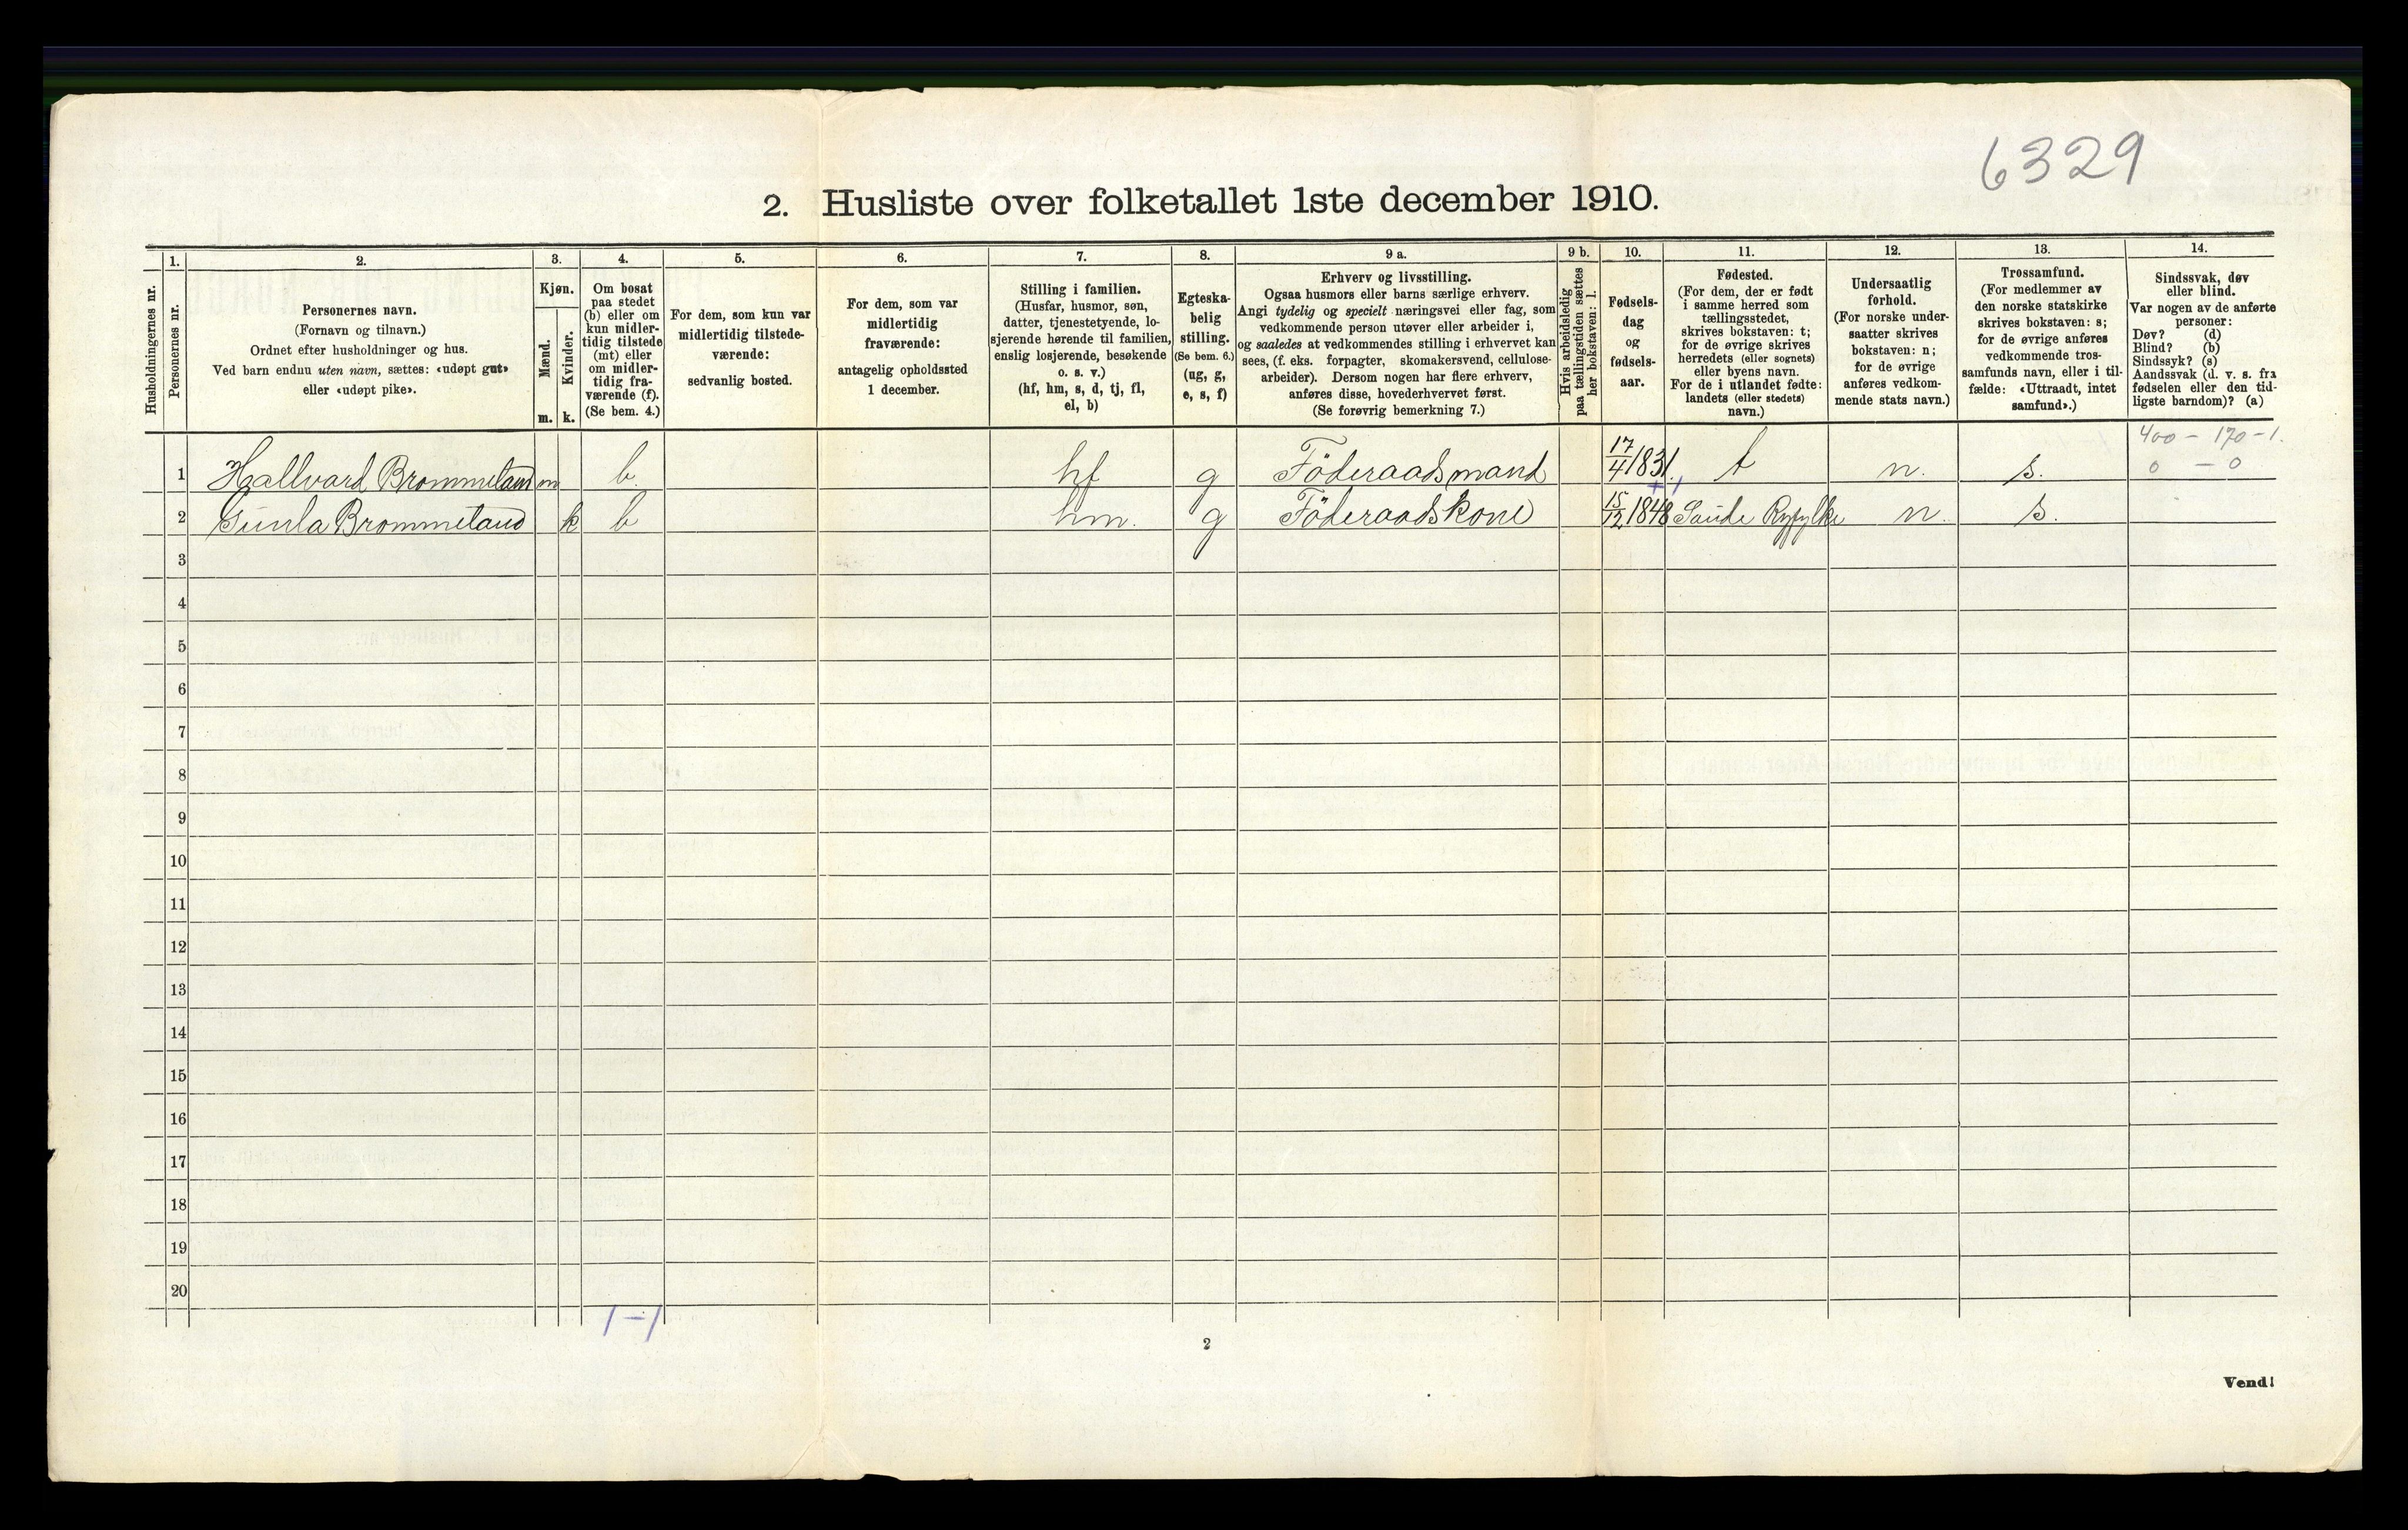 6329
2. Husliste over folketallet 1ste december 1910.
Husholdningernes nr.
1.
Personernes nr.
2.
Personernes navn.
(Fornavn og tilnavn.)
Ordnet efter husholdninger og hus.
Ved barn endnu uten navn, sættes: «udøpt gut»
eller «udøpt pike».
3.
Kjøn.
Mænd.
m.
Kvinder.
k.
4.
Om bosat
paa stedet
(b) eller om
kun midler-
tidig tilstede
(mt) eller
om midler-
tidig fra-
værende (f).
(Se bem. 4.)
5.
For dem, som kun var
midlertidig tilstede-
værende:
sedvanlig bosted.
6.
For dem, som var
midlertidig
fraværende:
antagelig opholdssted
1 december.
7.
Stilling i familien.
(Husfar, husmor, søn,
datter, tjenestetyende, lo-
sjerende hørende til familien,
enslig losjerende, besøkende
o. s. v.)
(hf, hm, s, d, tj, fl,
el, b)
8.
Egteska-
belig
stilling.
(Se bem. 6.)
(ug, g,
e, s, f)
9 a.
Erhverv og livsstilling.
Ogsaa husmors eller barns særlige erhverv.
Angi tydelig og specielt næringsvei eller fag, som
vedkommende person utøver eller arbeider i,
og saaledes at vedkommendes stilling i erhvervet kan
sees, (f. eks. forpagter, skomakersvend, cellulose-
arbeider). Dersom nogen har flere erhverv,
anføres disse, hovederhvervet først.
(Se forøvrig bemerkning 7.)
9 b.
Hvis arbeidsledig
paa tællingstiden sættes
her bokstaven: l.
10.
Fødsels-
dag
og
fødsels-
aar.
11.
Fødested.
(For dem, der er født
i samme herred som
tællingsstedet,
skrives bokstaven: t;
for de øvrige skrives
herredets (eller sognets)
eller byens navn.
For de i utlandet fødte:
landets (eller stedets)
navn.)
12.
Undersaatlig
forhold.
(For norske under-
saatter skrives
bokstaven: n;
for de øvrige
anføres vedkom-
mende stats navn.)
13.
Trossamfund.
(For medlemmer av
den norske statskirke
skrives bokstaven: s;
for de øvrige anføres
vedkommende tros-
samfunds navn, eller i til-
fælde: «Uttraadt, intet
samfund».)
14.
Sindssvak, døv
eller blind.
Var nogen av de anførte
personer:
Døv? (d)
Blind? (b)
Sindssyk? (s)
Aandssvak (d. v. s. fra
fødselen eller den tid-
ligste barndom)? (a)
400 - 170 - 1.
0 - 0
1 Hallvard Brommeland m b. hf g Föderaadsmand 17/4 1831. t n. s.
2 Gunla Brommeland k b hm. g Föderaadskone 15/12 1848 Saude Ryfylke n. s.
3
4
5
6
7
8
9
10
11
12
13
14
15
16
17
18
19
20
1-1
2
Vend!